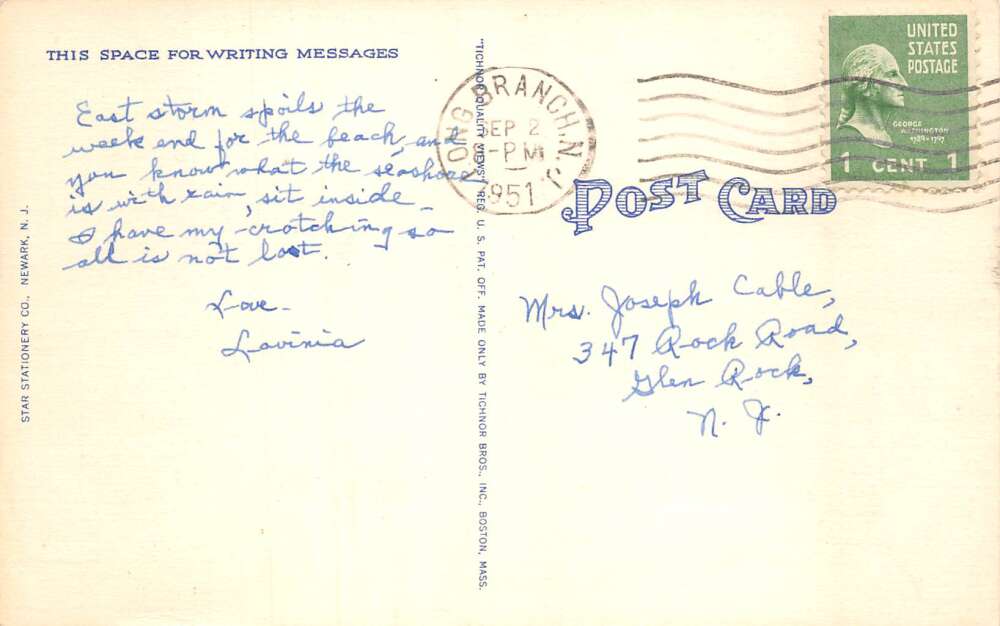 THIS SPACE FOR WRITING MESSAGES
East storm spoils the
week end for the beach, and
you know what the seashore
is with rain, sit inside -
I have my crotching so
all is not lost.
Love -
Lovinia
STAR STATIONERY CO., NEWARK, N. J.
"TICHNOR QUALITY VIEWS," REG. U. S. PAT. OFF. MADE ONLY BY TICHNOR BROS., INC., BOSTON, MASS.
LONG BRANCH, N.J.
SEP 2
PM
1951
UNITED
STATES
POSTAGE
GEORGE
WASHINGTON
1789-1797
1 CENT 1
POST CARD
Mrs. Joseph Cable,
347 Rock Road,
Glen Rock,
N. J.